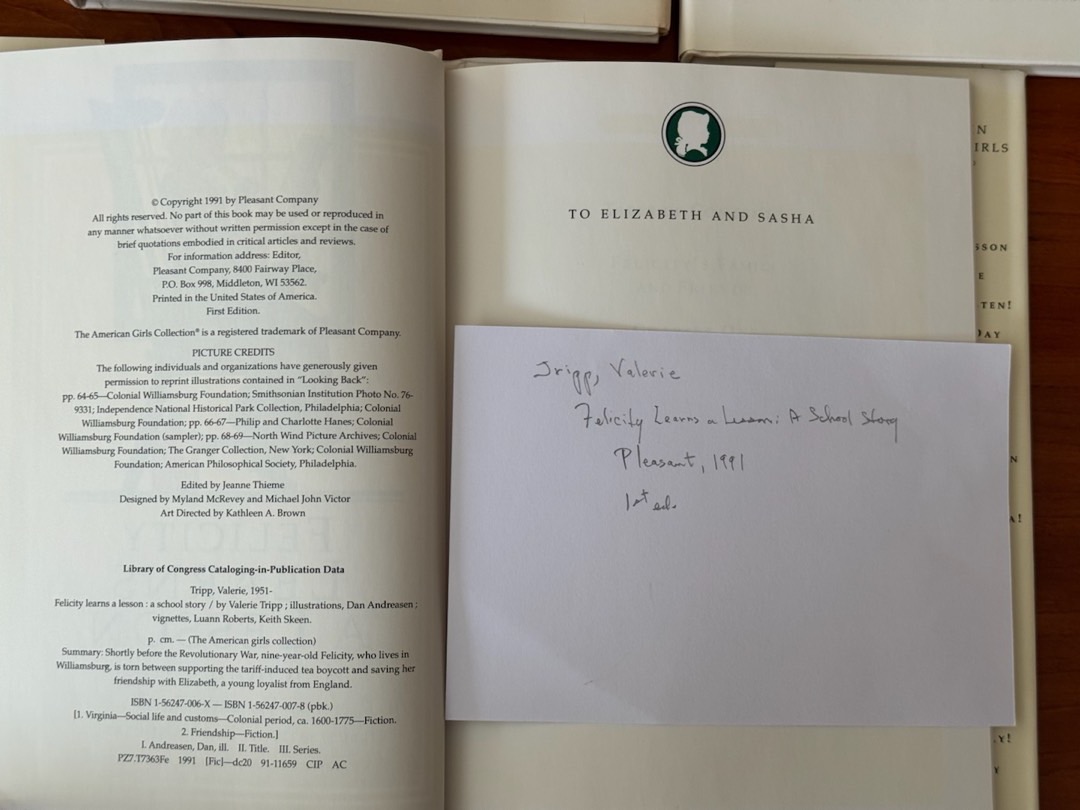 © Copyright 1991 by Pleasant Company
All rights reserved. No part of this book may be used or reproduced in
any manner whatsoever without written permission except in the case of
brief quotations embodied in critical articles and reviews.
For information address: Editor,
Pleasant Company, 8400 Fairway Place,
P.O. Box 998, Middleton, WI 53562.
Printed in the United States of America.
First Edition.
The American Girls Collection® is a registered trademark of Pleasant Company.
PICTURE CREDITS
The following individuals and organizations have generously given
permission to reprint illustrations contained in "Looking Back":
pp. 64-65—Colonial Williamsburg Foundation; Smithsonian Institution Photo No. 76-
9331; Independence National Historical Park Collection, Philadelphia; Colonial
Williamsburg Foundation; pp. 66-67—Philip and Charlotte Hanes; Colonial
Williamsburg Foundation (sampler); pp. 68-69—North Wind Picture Archives; Colonial
Williamsburg Foundation; The Granger Collection, New York; Colonial Williamsburg
Foundation; American Philosophical Society, Philadelphia.
Edited by Jeanne Thieme
Designed by Myland McRevey and Michael John Victor
Art Directed by Kathleen A. Brown
Library of Congress Cataloging-in-Publication Data
Tripp, Valerie, 1951-
Felicity learns a lesson : a school story / by Valerie Tripp ; illustrations, Dan Andreasen ;
vignettes, Luann Roberts, Keith Skeen.
p. cm. — (The American girls collection)
Summary: Shortly before the Revolutionary War, nine-year-old Felicity, who lives in
Williamsburg, is torn between supporting the tariff-induced tea boycott and saving her
friendship with Elizabeth, a young loyalist from England.
ISBN 1-56247-006-X — ISBN 1-56247-007-8 (pbk.)
[1. Virginia—Social life and customs—Colonial period, ca. 1600-1775—Fiction.
2. Friendship—Fiction.]
I. Andreasen, Dan, ill. II. Title. III. Series.
PZ7.T7363Fe 1991 [Fic]—dc20 91-11659 CIP AC
TO ELIZABETH AND SASHA
Tripp, Valerie
Felicity Learns a Lesson: A School Story
Pleasant, 1991
1st ed.